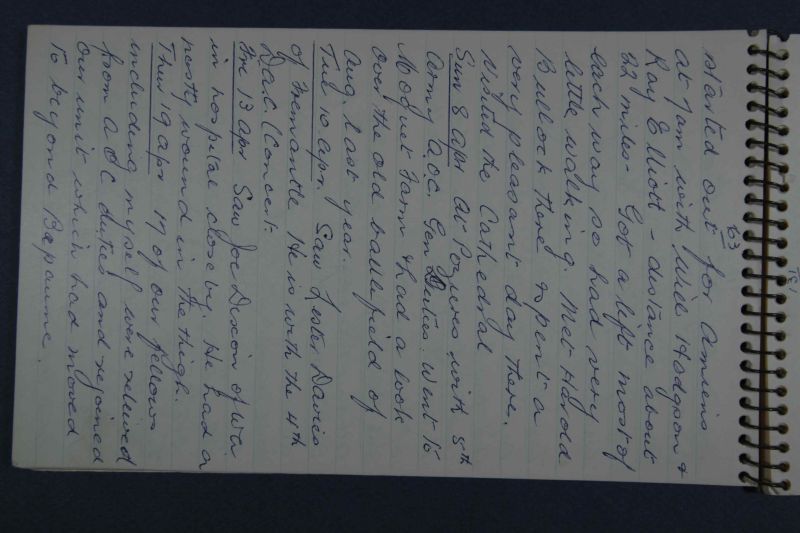 63
started out for Amiens
at 7am with Will Hodgson &
Ray Elliott - distance about
22 miles - Got a lift most of
each way so had very
little walking. Met Harold
Bullock there & spent a
very pleasant day there.
Visited the Cathedral
Sun 8 apr At Pozieres with 5th
Army A.O.C. Gen Duties. Went to
Moquet Farm & had a look
over the old battlefield of
Aug. last year.
Tue 10 apr. Saw Lester Davies
of Fremantle He is with the 4th
D.A.C. (Concert.
Fri 13 apr Saw Joe Dixon of WA
in hospital close by. He had a
nasty wound in the thigh.
Thur 19 apr 17 of our fellows
including myself were relieved
from A O C duties and rejoined
our unit which had moved
to beyond Bapaume.